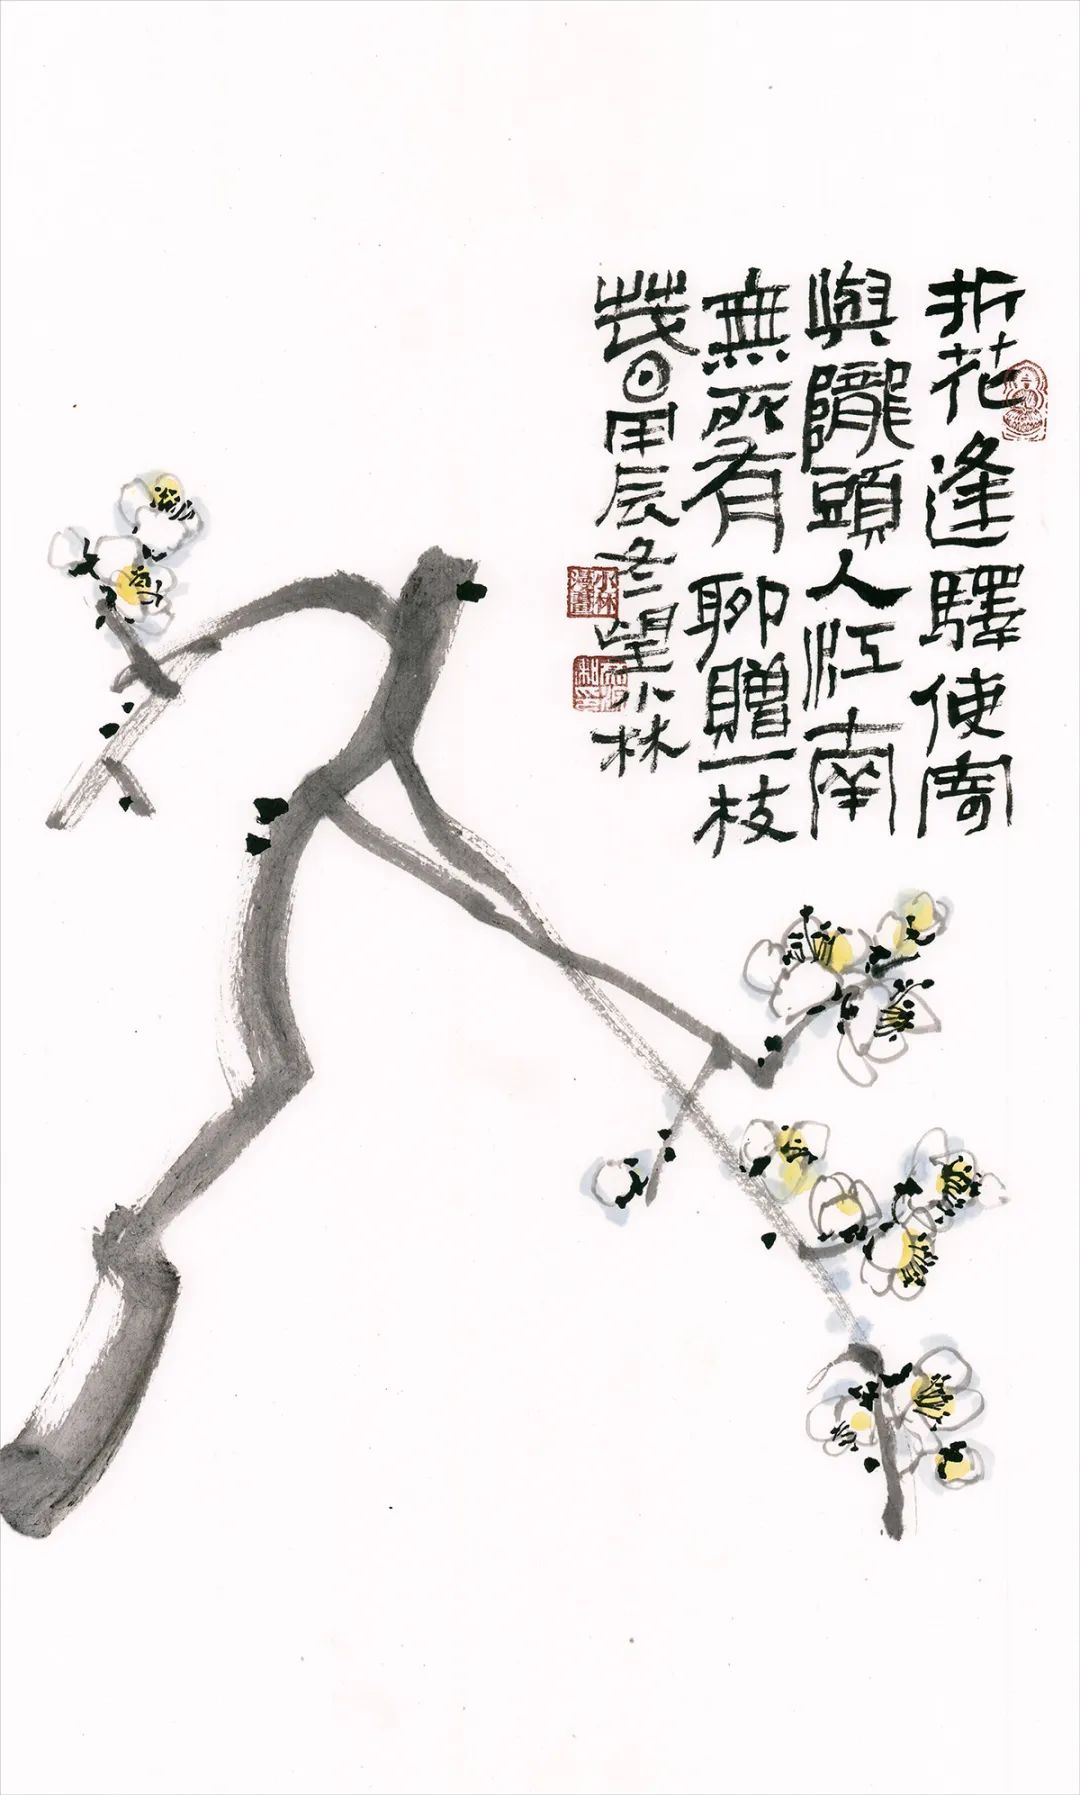 折花逢驛使寄
與隴頭人江南
無所有聊贈一枝
萅甲辰冬望小林